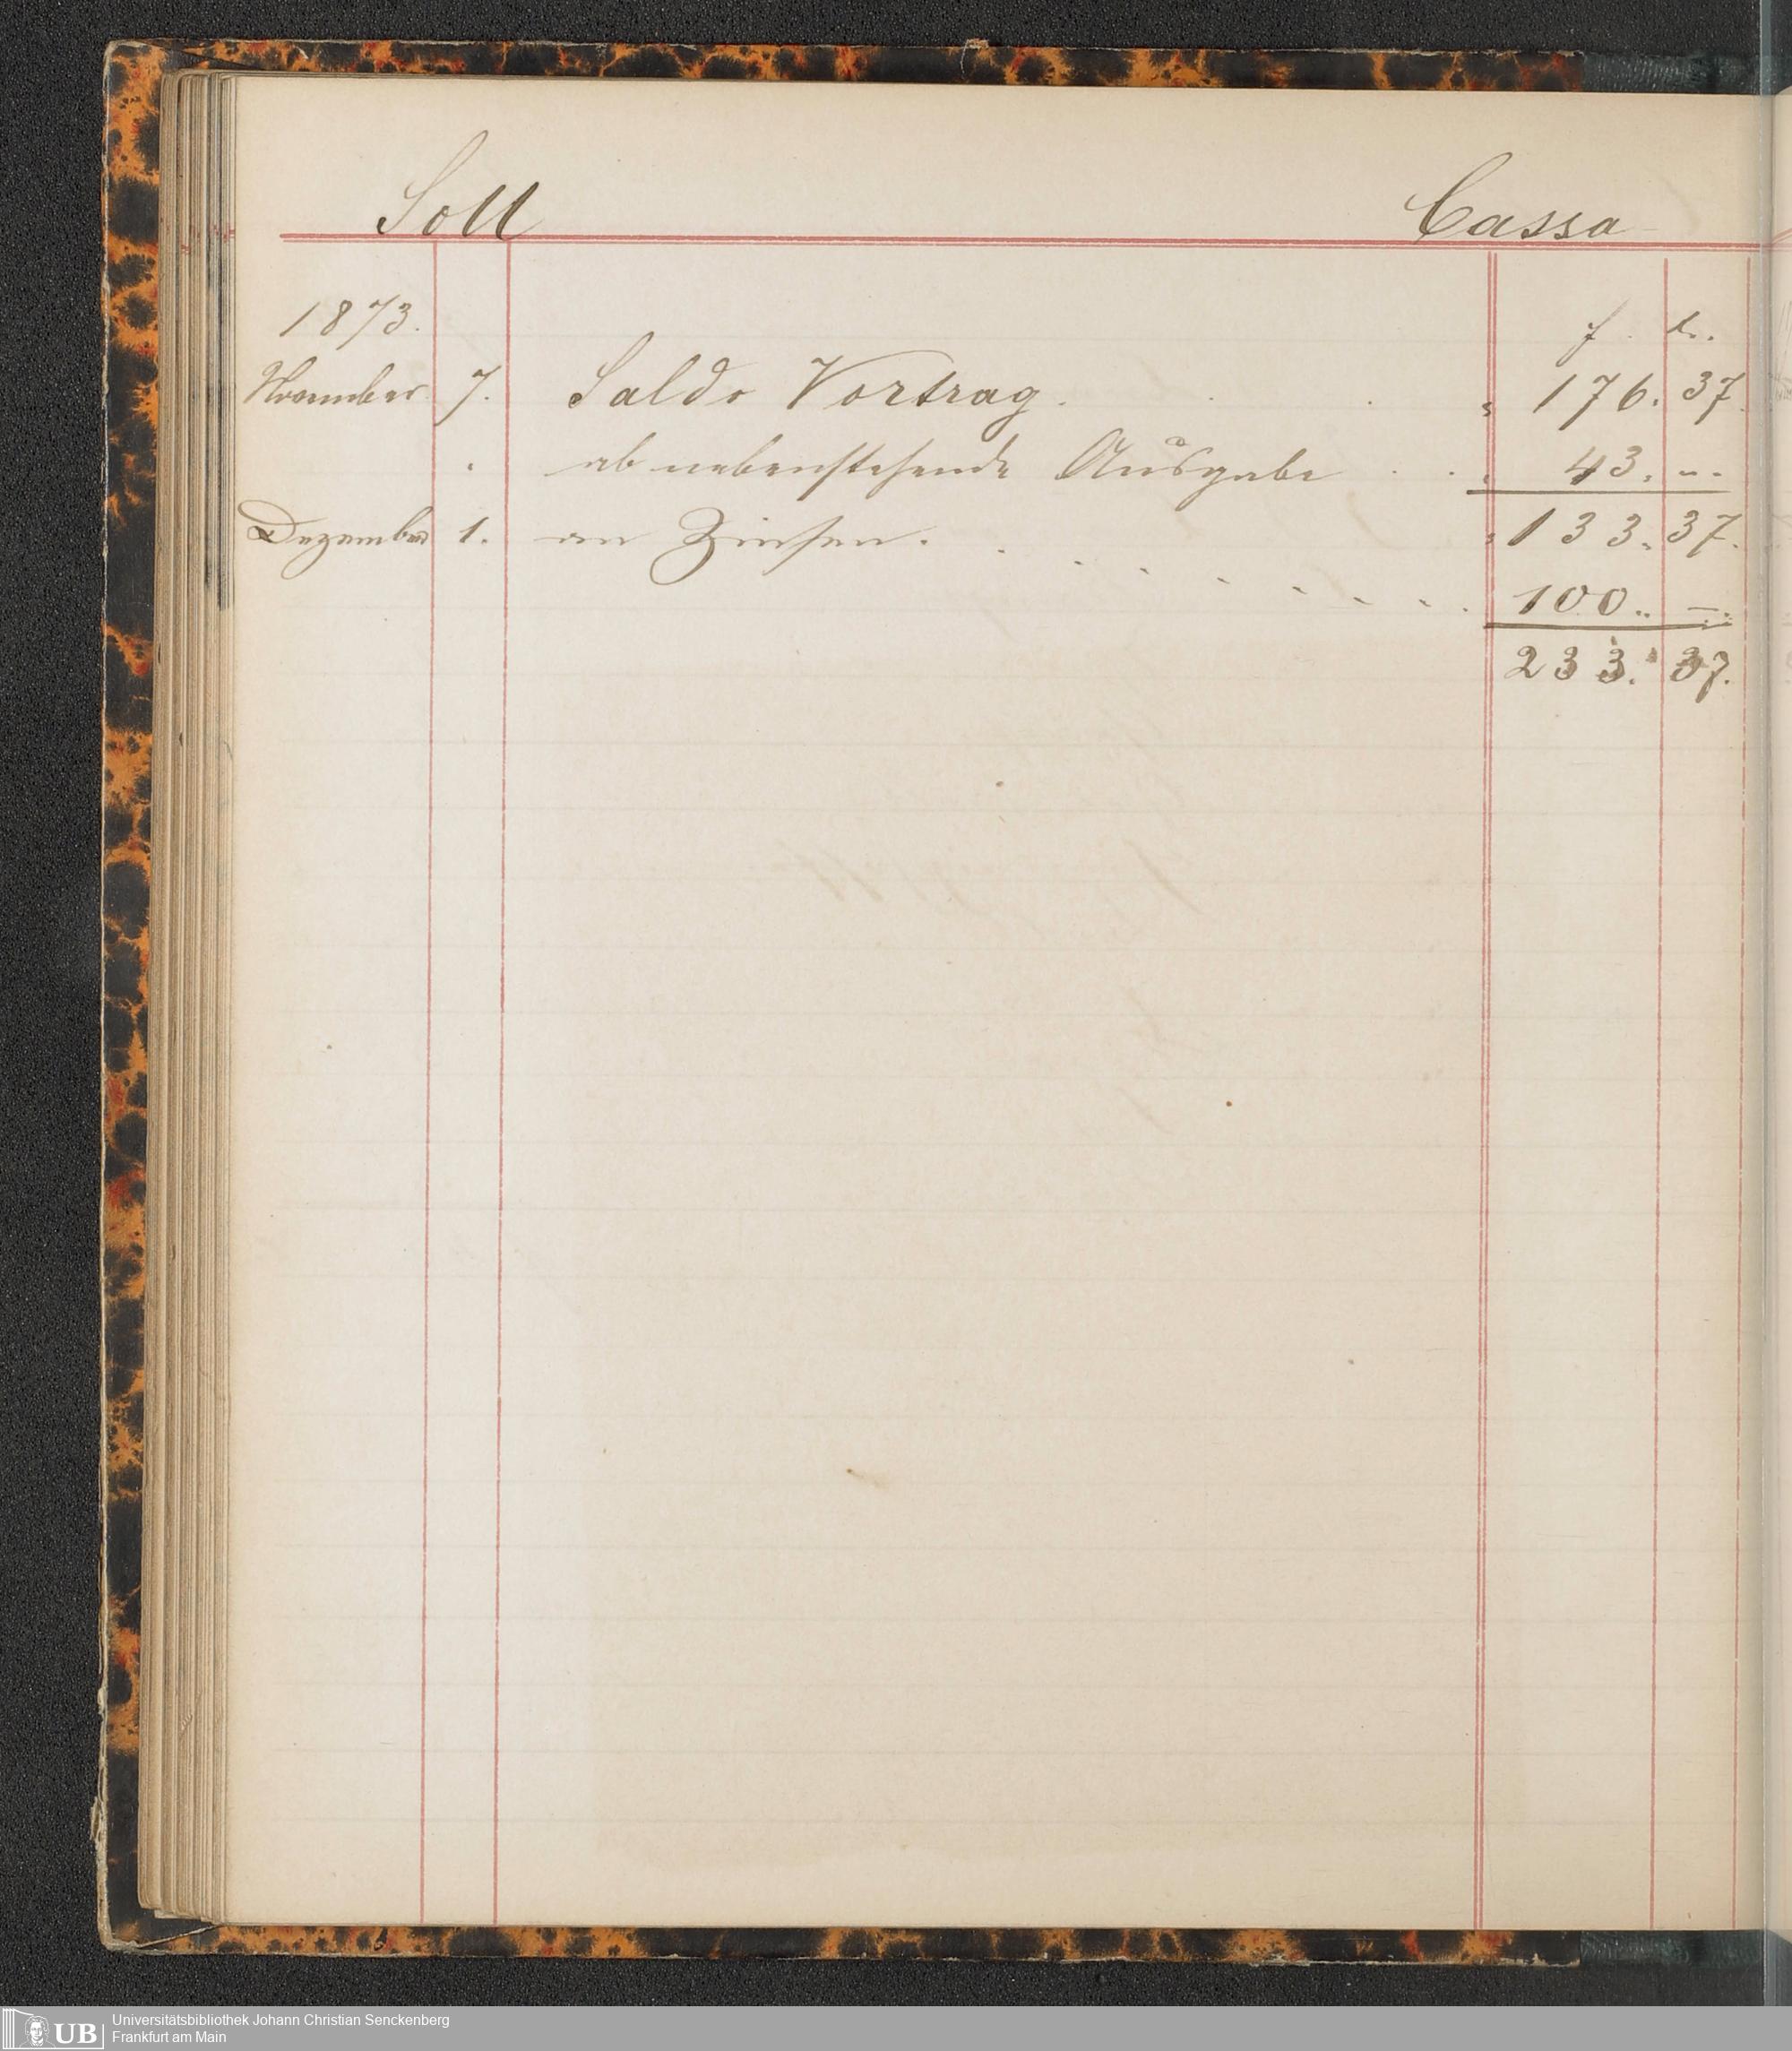 Soll Cassa
1873. f. kr.
November 7. Saldo Vortrag. 176. 37.
ab nebenstehende Ausgabe 43. "-
Dezember 1. an Zinsen. 133. 37.
100. —.
233. 37.
UB Universitätsbibliothek Johann Christian Senckenberg
Frankfurt am Main